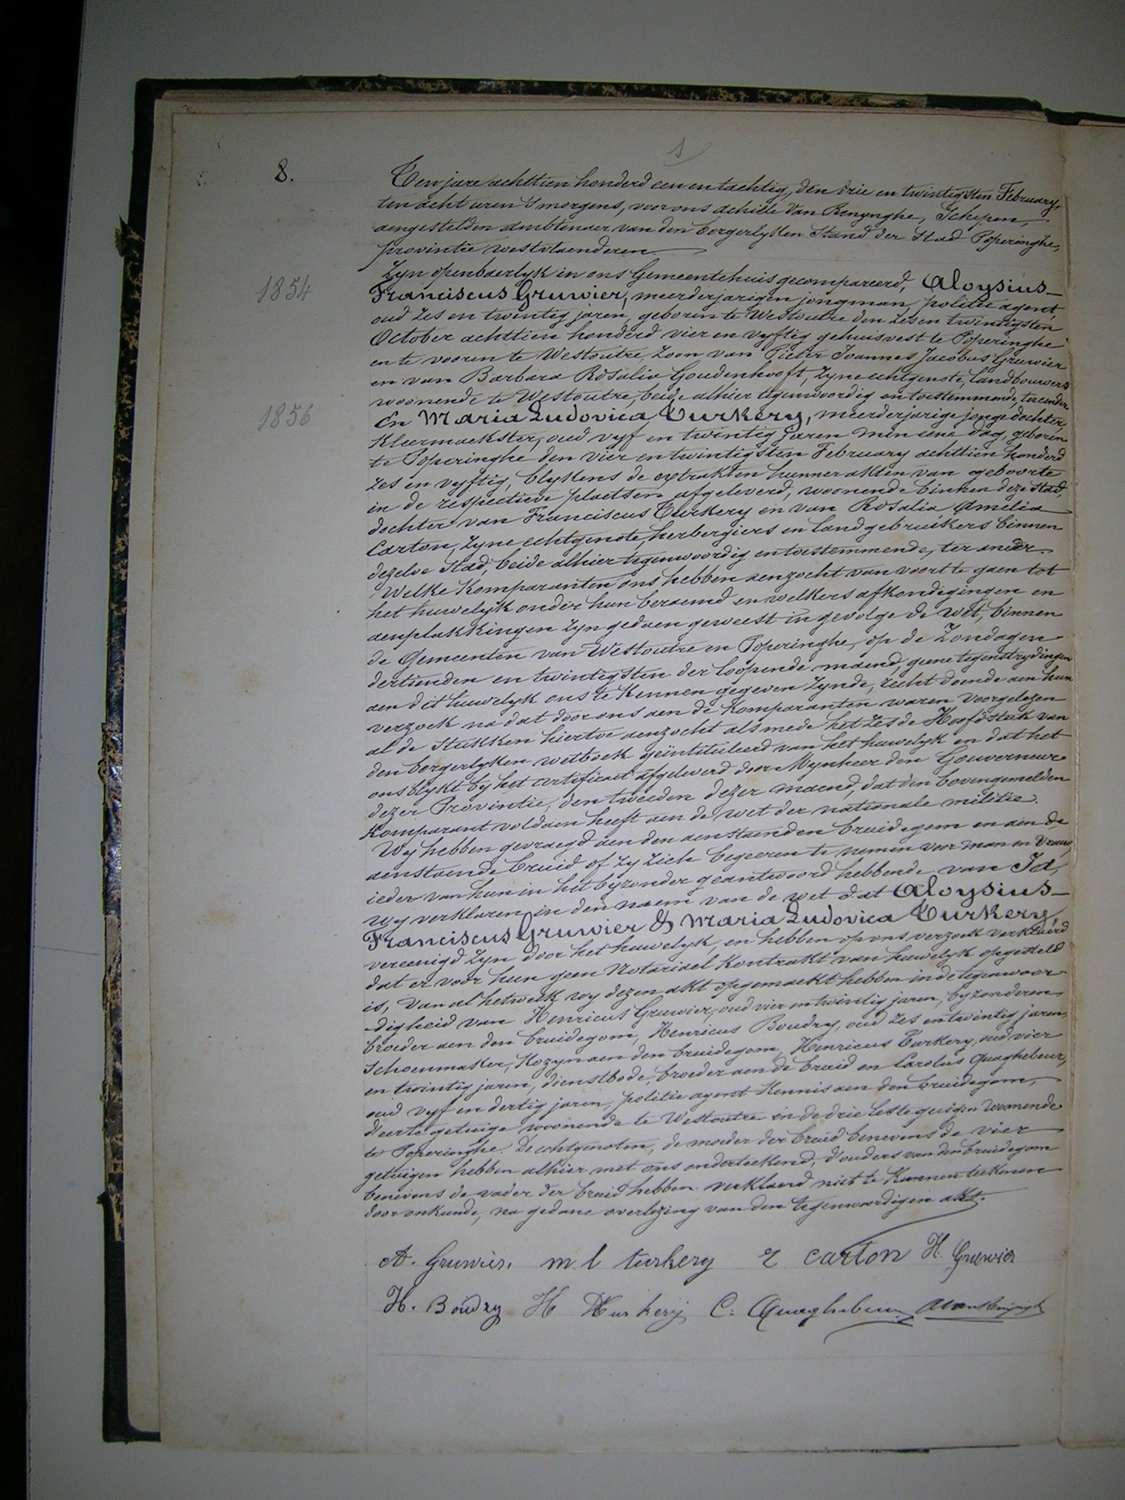 8.
Ten jare achttien honderd een en tachtig, den drie en twintigsten February,
ten acht uren 's morgens, voor ons Achiele Van Renynghe, Schepen,
aengestelden ambtenaer van den borgerlyken Stand der Stad Poperinghe,
provintie westvlaenderen
Zyn openbaerlyk in ons Gemeentehuis gecompareerd, Aloysius
1854
Franciscus Gruwier, meerderjarigen jongman, politie agent,
oud zes en twintig jaren, geboren te Westoutre den zes en twintigsten
October achttien honderd vier en vyftig gehuisvest te Poperinghe
en te vooren te Westoutre, zoon van Pieter Joannes Jacobus Gruwier
en van Barbara Rosalia Goudenhooft, zyne echtgenote, landbouwers
woonende te Westoutre, beide alhier tegenwoordig en toestemmende, ter eender
1856
En Maria Ludovica Turkery, meerderjarige jonge dochter,
kleermaekster, oud vyf en twintig jaren min eene dag, geboren
te Poperinghe den vier en twintigsten February achttien honderd
zes en vyftig, blykens de extrakten hunner akten van geboorte
in de respectieve plaetsen afgeleverd, woonende binnen deze stad,
dochter van Franciscus Turkery en van Rosalia Amelia
Carton, zyne echtgenote, herbergiers en landgebruikers binnen
dezelve Stad, beide alhier tegenwoordig en toestemmende, ter ander
Welke Komparanten ons hebben aenzocht van voort te gaen tot
het huwelyk onder hun beraemd en welkers afkondigingen en
aenplakkingen zyn gedaen geweest in gevolge de wet, binnen
de Gemeenten van Westoutre en Poperinghe, op de Zondagen
dertienden en twintigsten der loopende maend, geene tegenstrydingen
aen dit huwelyk ons te kennen gegeven zynde, recht doende aen hun
verzoek na dat door ons aen de Komparanten waren voorgelezen
al de Stukken hiertoe aenzocht alsmede het zesde Hoofdstuk van
den borgerlyken wetboek geïntituleerd van het huwelyk en dat het
ons blykt by het certificaet afgeleverd door Mynheer den Gouverneur
dezer Provintie, den tweeden dezer maend, dat den bovengemelden
Komparant voldaen heeft aen de wet der nationale militie.
Wy hebben gevraegd aen den aenstaenden bruidegom en aen de
aenstaende bruid of zy zich begeeren te nemen voor man en vrouw
ieder van hun in het byzonder geantwoord hebbende van Ja,
wy verklaren in den naem van de wet dat Aloysius
Franciscus Gruwier & Maria Ludovica Turkery,
vereenigd zyn door het huwelyk, en hebben op ons verzoek verklaerd
dat er voor hun geen Notarieel Kontrakt van huwelyk opgesteld
is, van al hetwelk wy dezen akt opgemaekt hebben in de tegenwoor
digheid van Henricus Gruwier, oud vier en twintig jaren, byzonderen,
broeder aen den bruidegom, Henricus Boudry, oud zes en twintig jaren,
schoenmaker, Kozyn aen den bruidegom, Henricus Turkery, oud vier
en twintig jaren, dienstbode, broeder aen de bruid en Carolus Quaghebeur,
oud vyf en dertig jaren, politie agent Kennis aen den bruidegom,
d'eerste getuige woonende te Westoutre en de drie leste getuigen woonende
te Poperinghe. De echtgenoten, de moeder der bruid benevens de vier
getuigen hebben alhier met ons onderteekend, d'ouders van den bruidegom
benevens de vader der bruid hebben verklaerd niet te kunnen teekenen
door onkunde, na gedane overlezing van den tegenwoordigen akt.
A. Gruwier. m l turkery r carton H. Gruwier
H. Boudry H Turkery C. Quaghebeur